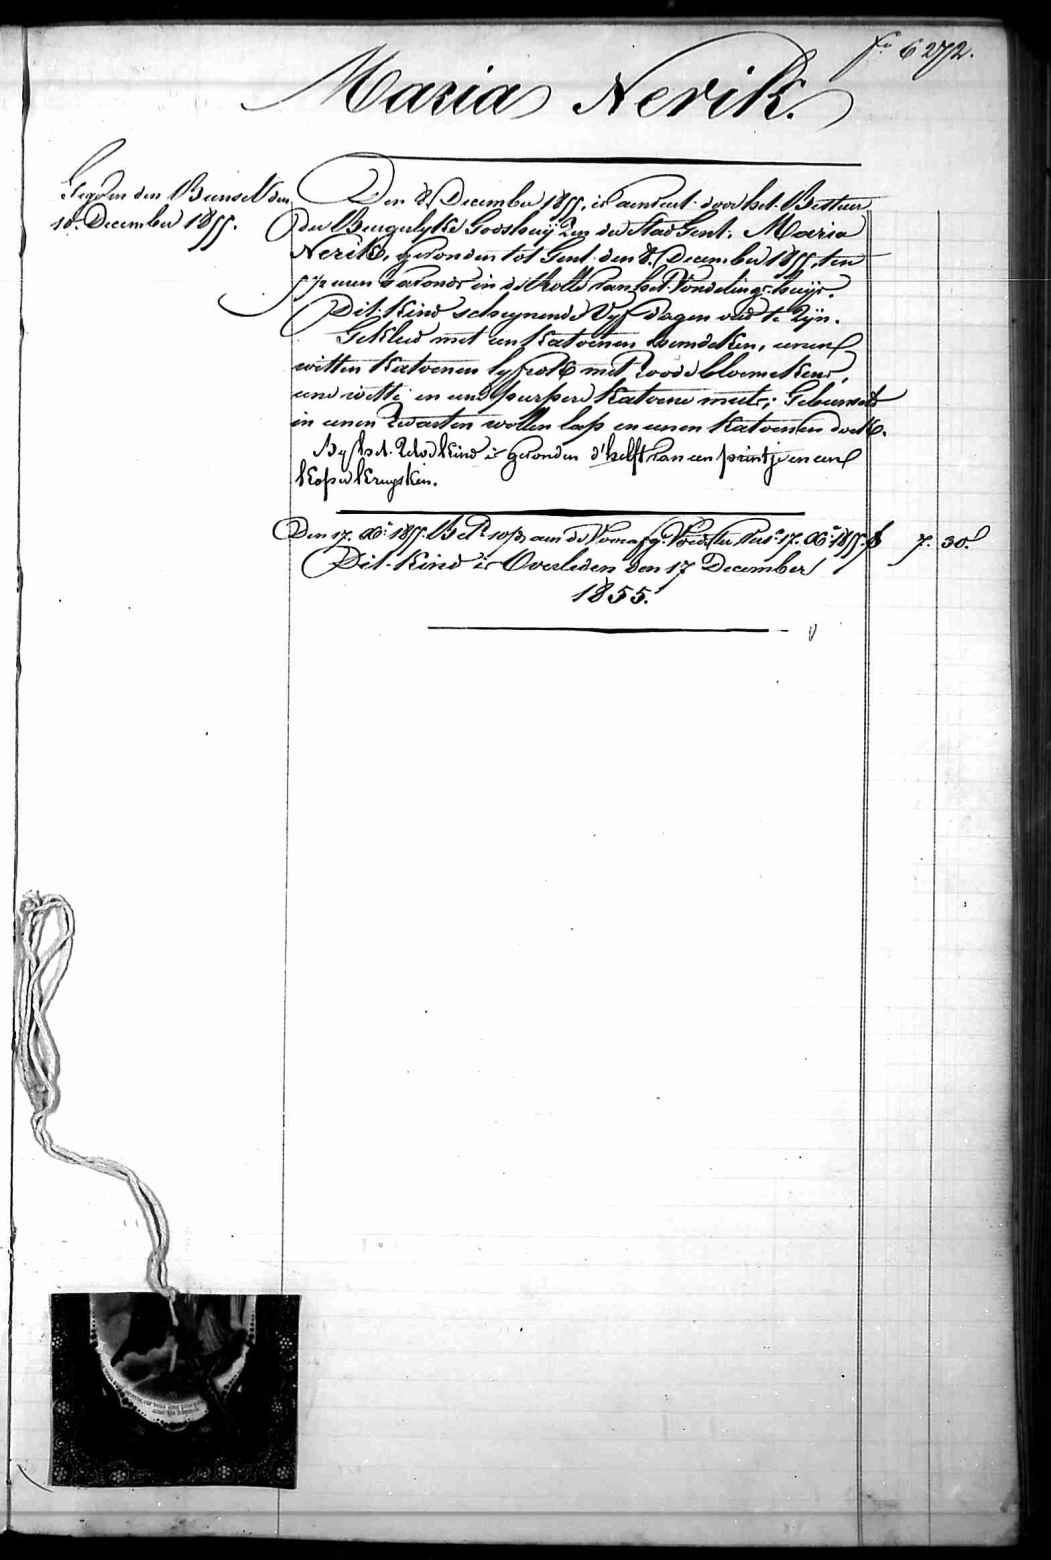 fo. 6272.
Maria Nerik.
den
10. December 1855.
Den 8. December 1855, is aenveirt door het Bestuer
der Burgelyke Godshuyzen der Stad Gent. Maria
Nerik, gevonden tot Gent den 8. December 1855, ten
5 1/2 uren s'avonds in de Rolle van het Vondelingshuys.
Dit Kind scheynende Vyf dagen oud te Zyn.
Gekleed met een Katoenen hemdeken, eenen
witten Katoenen lyfrok met Roode bloemekens,
eene witte en eene purpere Katoene muts; Gebunseld
in eenen Zwarten wollen lap en eenen Katoenen doek.
By het Zelve Kind is gevonden d'helft van een printje en een
Koper Kruysken.
Den 17. Xb. 1855. aen de Voedster 17. Xb. 1855. 7. 30.
Dit Kind is Overleden den 17 December
1855.